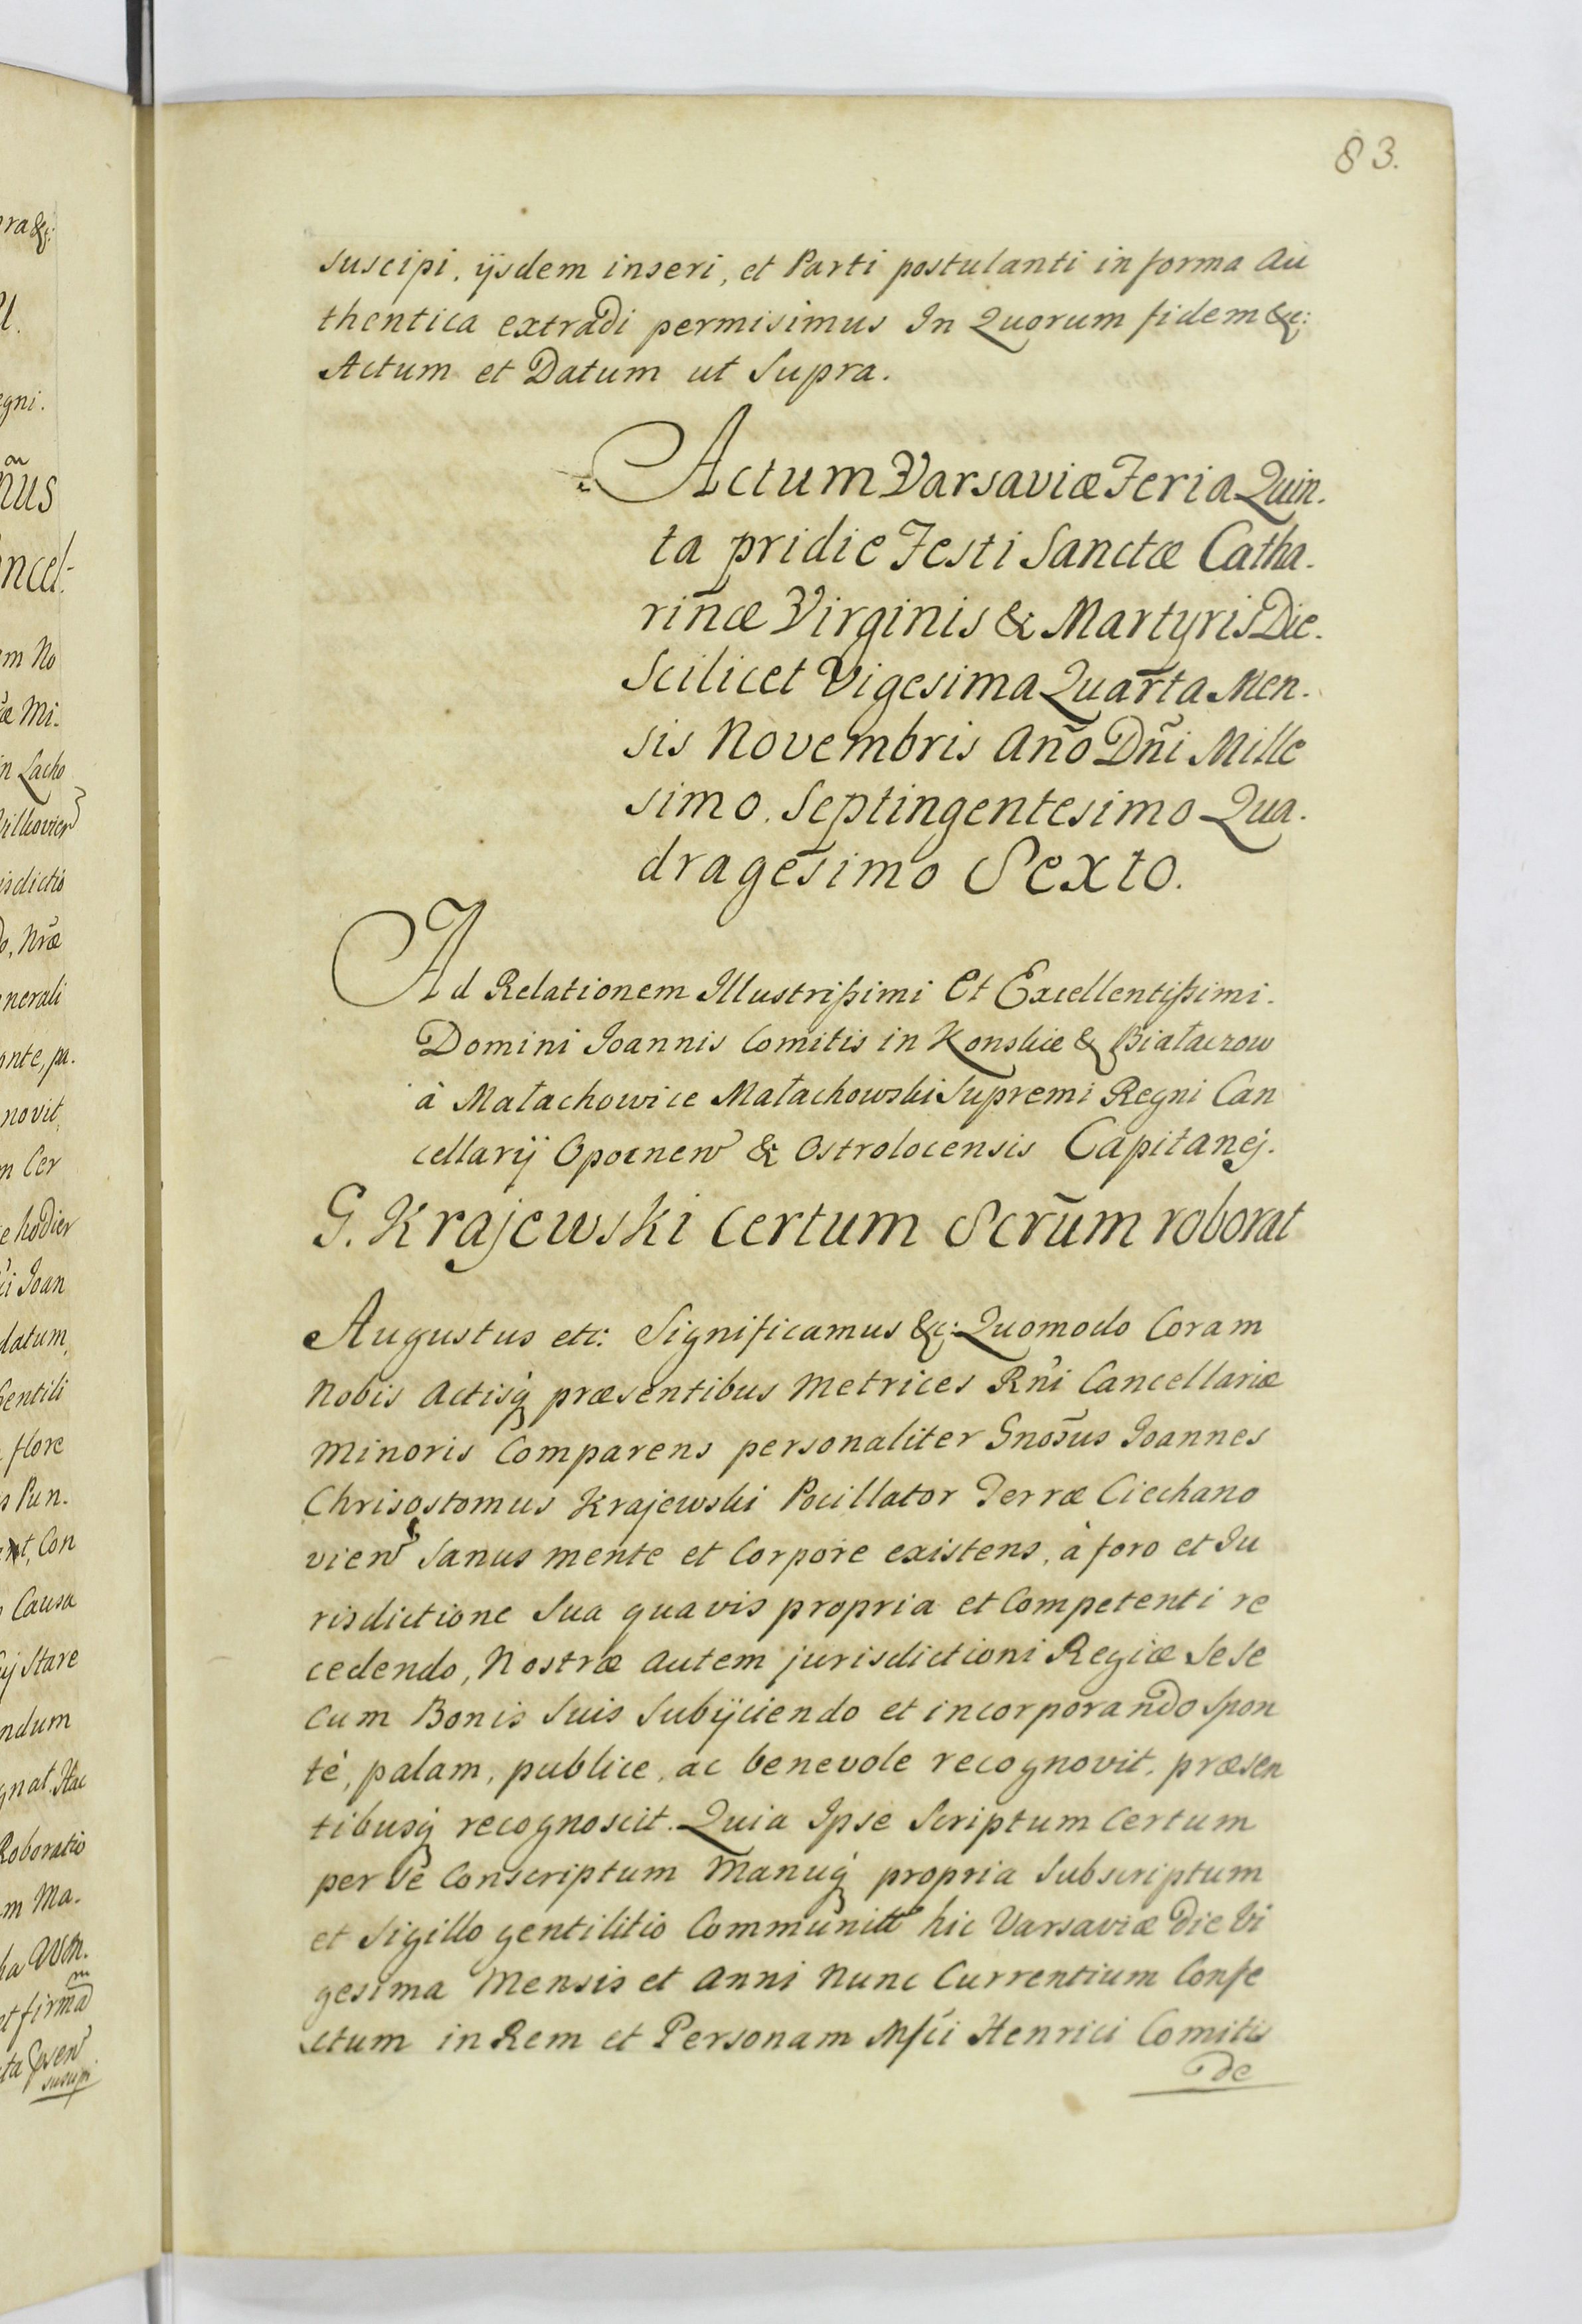 83.
suscipi, ijsdem inseri, et Parti postulanti in forma Au
thentica extradi permisimus In Quorum fidem &c:
Actum et Datum ut Supra.
Actum Varsaviæ Feria Quin.
ta pridie Festi Sanctæ Catha.
rinæ Virginis & Martyris Die.
Scilicet Vigesima Quarta Men.
sis Novembris Año Dñi Mille
simo. Septingentesimo Qua.
dragesimo Sexto.
Ad Relationem Illustrißimi Et Excellentißimi.
Domini Joannis Comitis in Konskie & Białaczow
à Małachowice Małachowski Supremi Regni Can
cellarij Opocnen & Ostrolocensis Capitanej.
G. Krajewski certum Scrũm roborat
Augustus etc: Significamus &c: Quomodo Coram
Nobis Actisq præsentibus Metrices Rñi Cancellariæ
Minoris Comparens personaliter Gnosus Joannes
Chrisostomus Krajewski Pocillator Terræ Ciechano
vien Sanus mente et Corpore existens, à foro et Ju
risdictione Sua quavis propria et Competenti re
cedendo, Nostræ autem jurisdictioni Regiæ Sese
Cum Bonis Suis Subijciendo et incorporando Spon
tè, palam, publice, ac benevole recognovit, præsen
tibusq recognoscit. Quia Ipse Scriptum Certum
per Se Conscriptum Manuq propria Subscriptum
et Sigillo gentilitio Communitt hic Varsaviæ Die Vi
gesima Mensis et Anni Nunc Currentium Confe
ctum in Rem et Personam Mfci Henrici Comitis
De